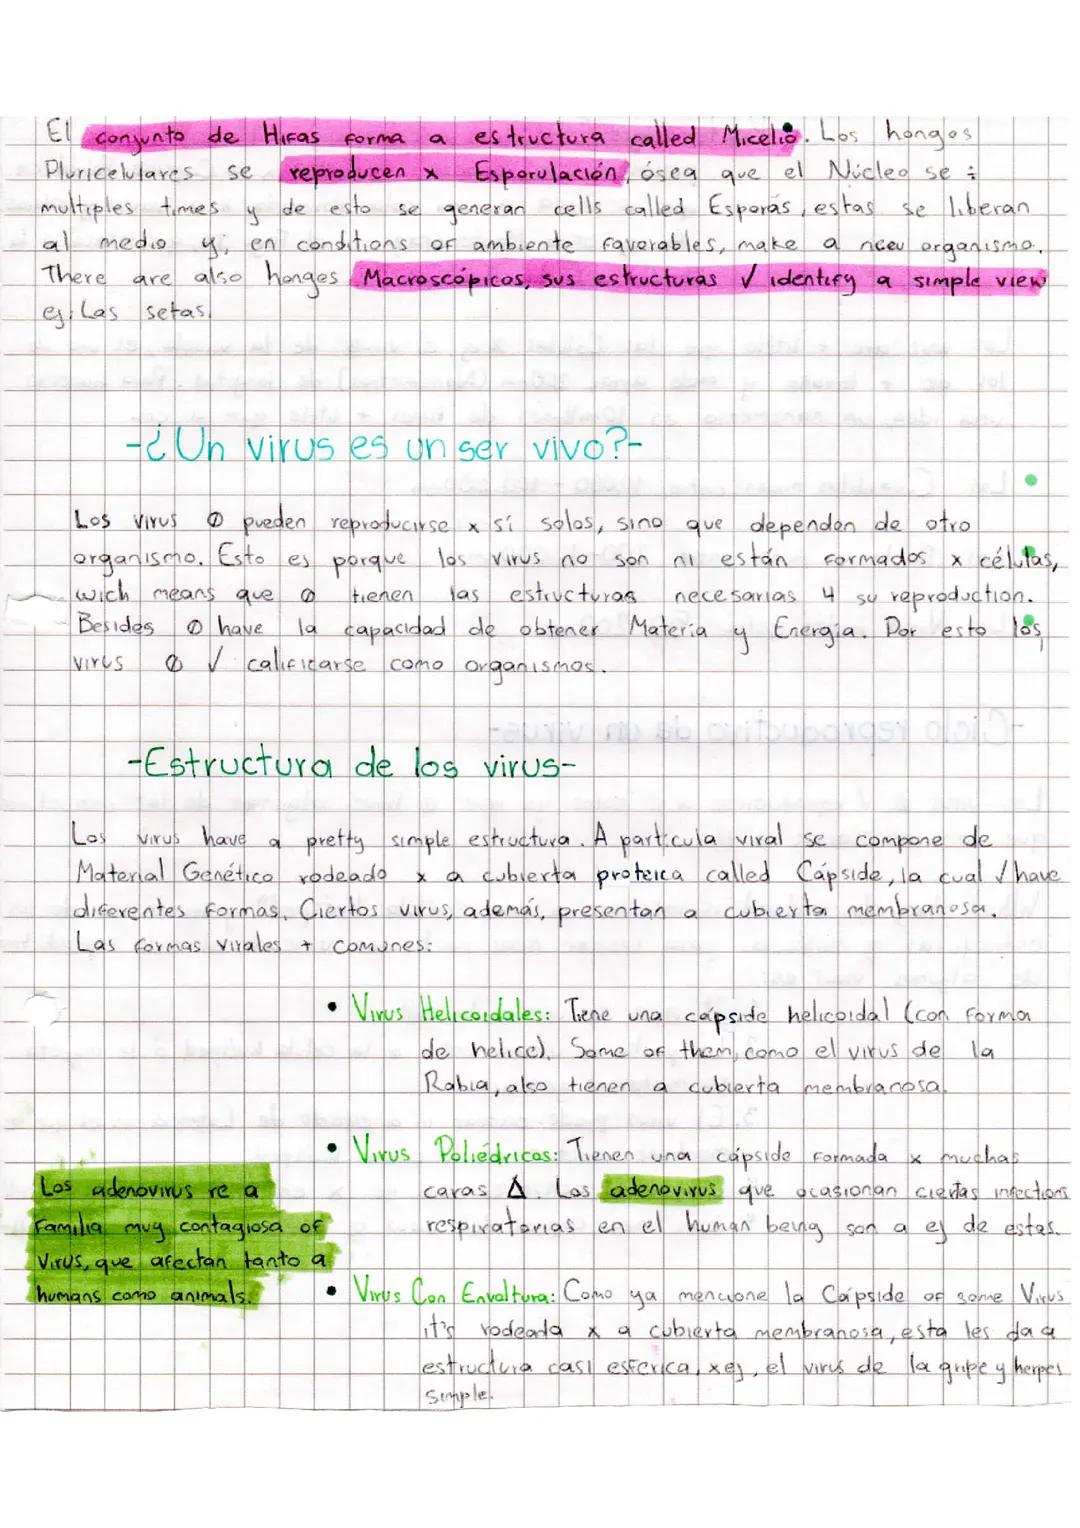 El conjunto de Hifas forma a estructura called Micelio. Los hongos
Pluricelulares se reproducen x Esporulación, ósea que el Núcleo se ÷
multiples times y de esto se generan cells called Esporás, estas se liberan
al medio y, en conditions of ambiente favorables, make a new organismo.
There are also hongos Macroscópicos, sus estructuras √ identify a simple view
ej: Las setas.
-¿Un virus es un ser vivo?-
Los virus Ø pueden reproducirse x sí solos, sino que dependen de otro
organismo. Esto es porque los virus no son ni están formados x células,
wich means que Ø tienen las estructuras necesarias 4 su reproduction.
Besides Ø have la capacidad de obtener Materia y Energia. Por esto los
virus Ø √ calificarse como organismos.
-Estructura de los virus-
Los virus have a pretty simple estructura. A particula viral se compone de
Material Genético rodeado x a cubierta proteica called Cápside, la cual √ have
diferentes formas. Ciertos virus, además, presentan a cubierta membranosa.
Las formas virales + comunes:
• Virus Helicoidales: Tiene una cápside helicoidal (con forma
de helice). Some of them, como el virus de la
Rabia, also tienen a cubierta membranosa.
• Virus Poliédricos: Tienen una cápside formada x muchas
caras Δ. Los adenovirus que ocasionan ciertas infections
respiratorias en el human being son a ej de estas.
Los adenovirus re a
Familia muy contagiosa of
Virus, que afectan tanto a
humans como animals.
• Virus Con Envoltura: Como ya mencione la Cápside of some Virus
it's rodeada x a cubierta membranosa, esta les da a
estructura casi esferica, x ej, el virus de la gripe y herpes
simple.